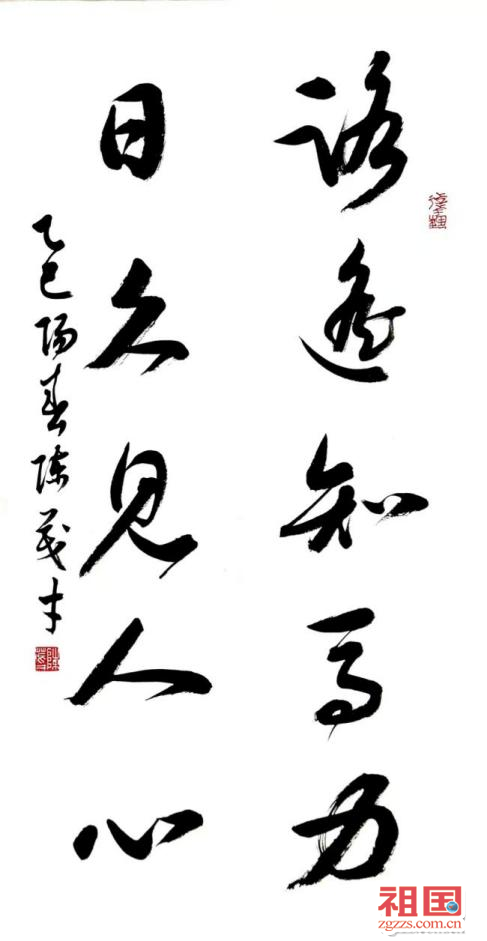 路遥知马力
日久见人心
乙巳阳春陈茂才
祖国
zgzzs.com.cn